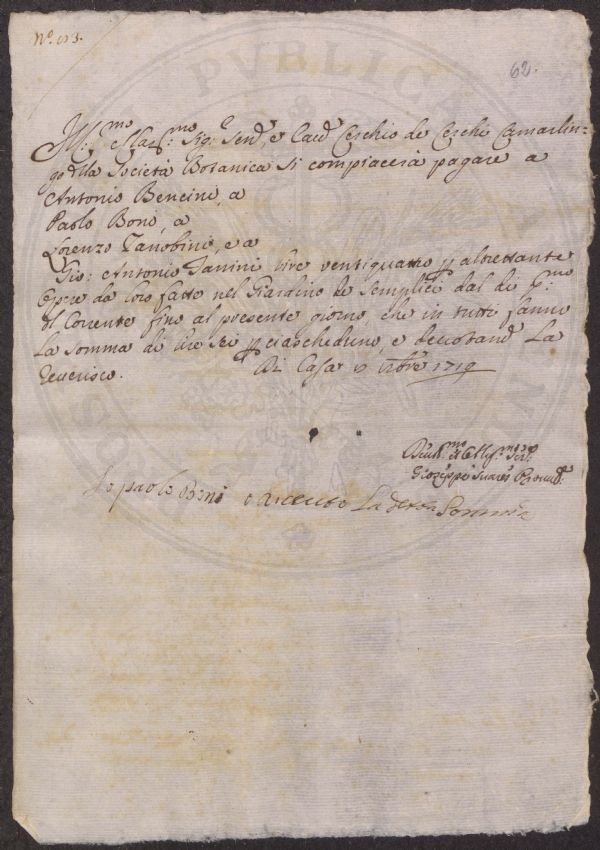 N.º 113.
62.
Ill:mo e Clar:mo Sig:re Send:e, e Cav:e Cerchio de Cerchi Camarlin-
go della Società Botanica si compiacerà pagare a
Antonio Bencini, a
Paolo Boni, a
Lorenzo Zanobini, e a
Gio: Antonio Janini lire ventiquattro p altrettante
Opere da loro fatte nel Giardino de Semplici dal di P:mo
del Corrente fino al presente giorno, che in tutti fanno
La somma di lire sei p ciascheduno, e devotam:e La
reverisco.
Di Casa 1719
Devot:mo et Obblig:mo Ser:e
Giuseppe Suares Proved:e
Io paolo Boni o ricevuto La detta Somma